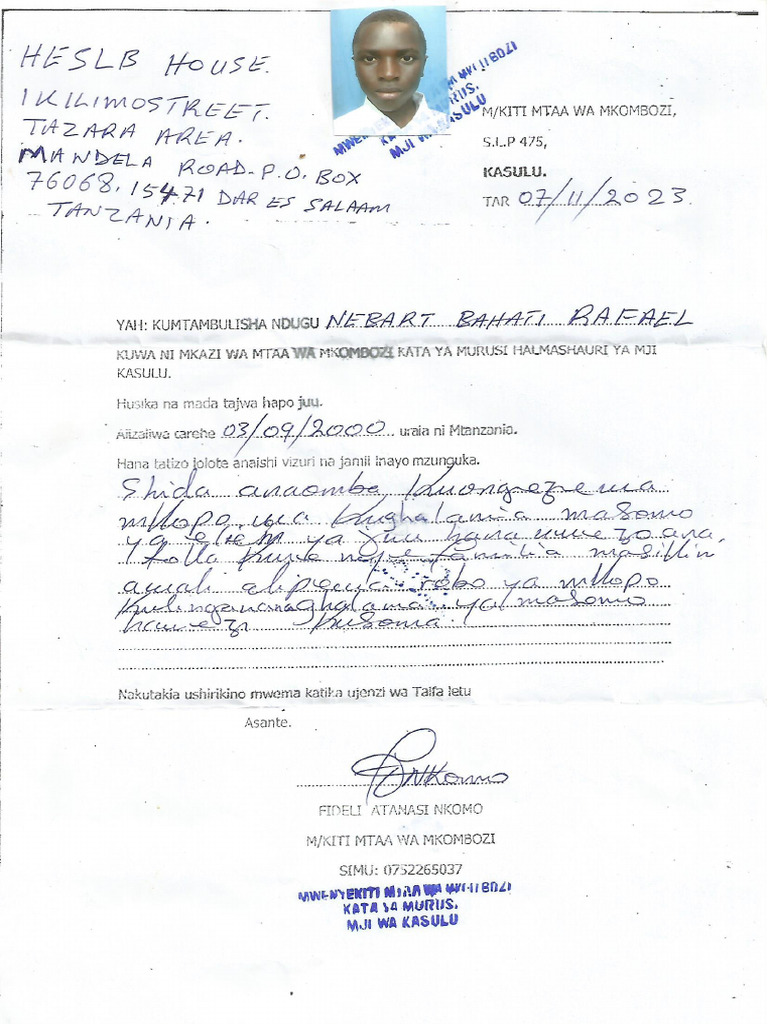 HESLB HOUSE.
1 KILIMO STREET.
TAZARA AREA.
MANDELA ROAD - P.O. BOX
76068, 15471 DAR ES SALAAM
TANZANIA.
MJI WA
M/KITI MTAA WA MKOMBOZI,
S.L.P 475,
KASULU.
TAR 07/11/2023.
YAH: KUMTAMBULISHA NDUGU NEBART BAHATI RAFAEL
KUWA NI MKAZI WA MTAA WA MKOMBOZI KATA YA MURUSI HALMASHAURI YA MJI
KASULU.
Husika na mada tajwa hapo juu.
Alizaliwa tarehe 03/09/2000 uraia ni Mtanzania.
Hana tatizo jolote anaishi vizuri na jamii inayo mzunguka.
Shida anaomba kuongezewa
mkopo wa kughalamia masomo
ya elam ya juu hana uwezo ana
kuwa familia masikin
awali alipewa robo ya mkopo
ya masomo
hawezi kusoma.
Nakutakia ushirikino mwema katika ujenzi wa Taifa letu
Asante.
Nkomo
FIDELI ATANASI NKOMO
M/KITI MTAA WA MKOMBOZI
SIMU: 0752265037
MWENYEKITI MTAA WA MKOMBOZI
KATA YA MURUS.
MJI WA KASULU